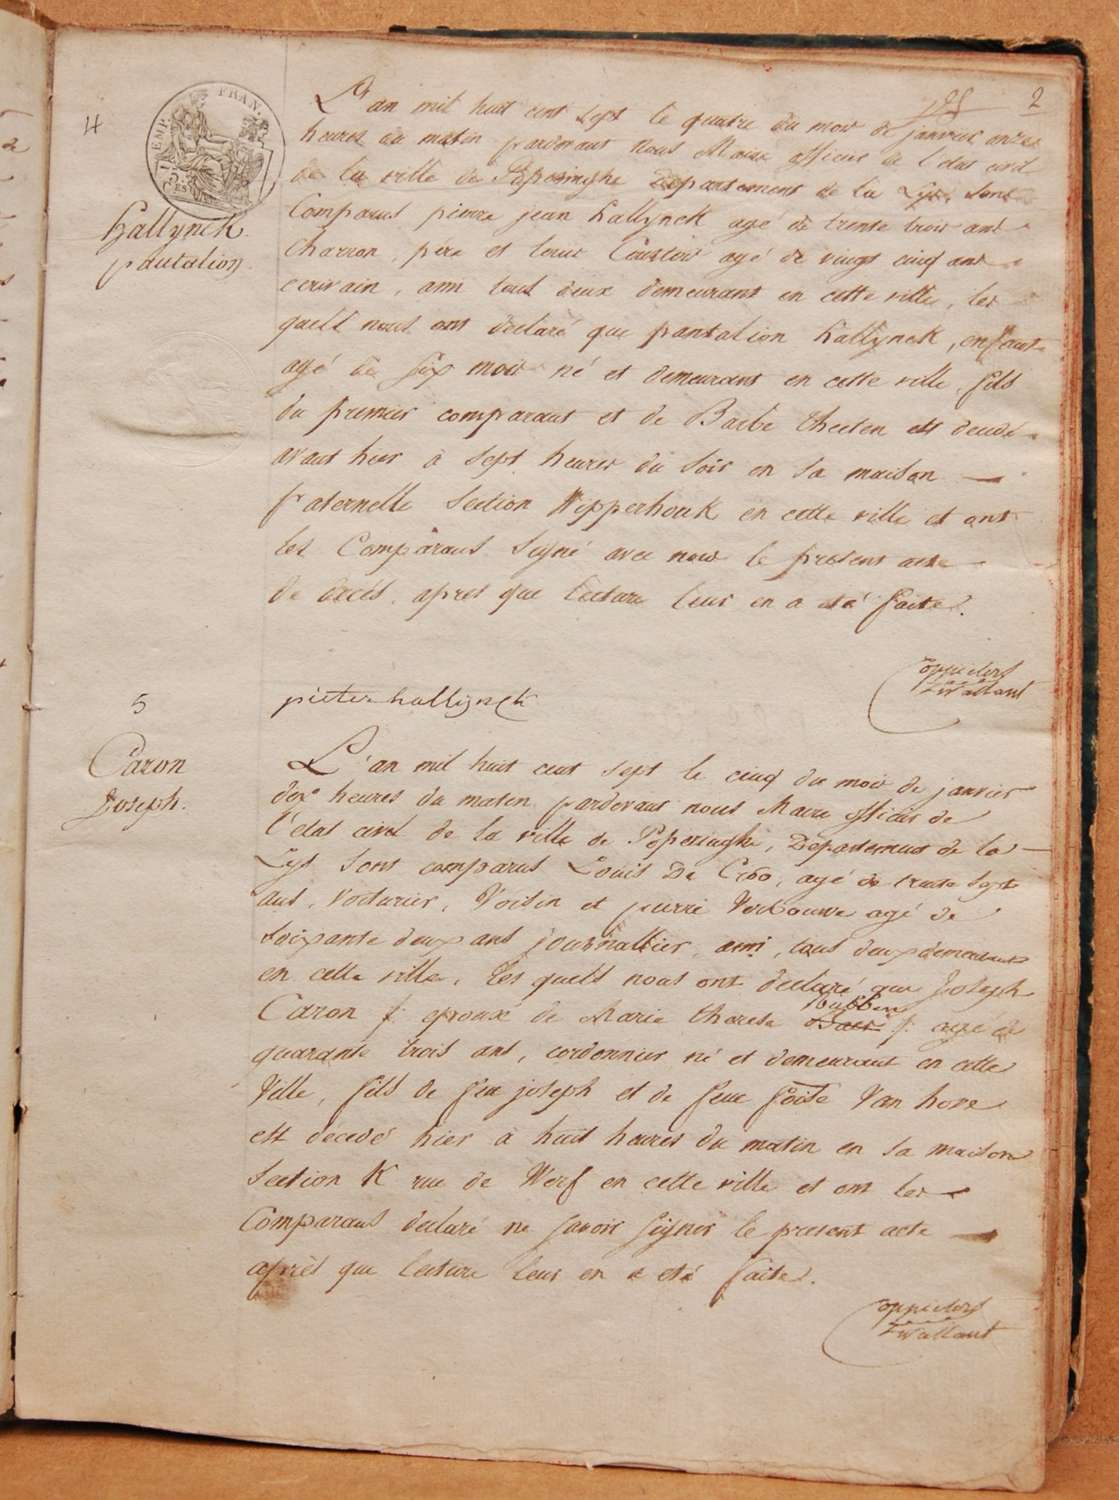 2
4
EMP. FRAN.
Hallynck
pantalion
L'an mil huit cent sept le quatre du mois de janvier onze
heures du matin pardevant nous Maire officier de l'etat civil
de la ville de Poperinghe Departement de la Lys, sont
Comparus pierre jean hallynck agé de trente trois ans
Charron, père et louis agé de vingt cinq ans
ecrivain, ami tous deux demeurans en cette ville, les
quels nous ont declaré que pantalion hallynck, enfant
agé de six mois né et demeurant en cette ville, fils
du premier comparant et de Barbe theeten est decedé
avant hier à sept heures du soir en sa maison
paternelle section Wipperhouk en cette ville et ont
les Comparans signé avec nous le present acte
de decés, apres que lecture leur en a eté faite.
pieter hallijnck
5
Caron
Joseph.
L'an mil huit cent sept le cinq du mois de janvier
dix heures du matin pardevant nous Maire officier de
l'etat civil de la ville de Poperinghe, Departement de la
Lys sont comparus Louis De Croo, agé de trente sept
ans, Voiturier, Voisin et pierre Verbouwe agé de
soixante deux ans journallier, ami, tous deux demeurans
en cette ville, Les quels nous ont declaré que Joseph
Caron f: epoux de Marie therese Bubben f: agé de
quarante trois ans, cordonnier né et demeurant en cette
Ville, fils de feu joseph et de feue Van hove
est decedé hier à huit heures du matin en sa maison
section K rue de Werf en cette ville et ont les
Comparans declaré ne savoir signer le present acte
après que lecture leur en a eté faite.